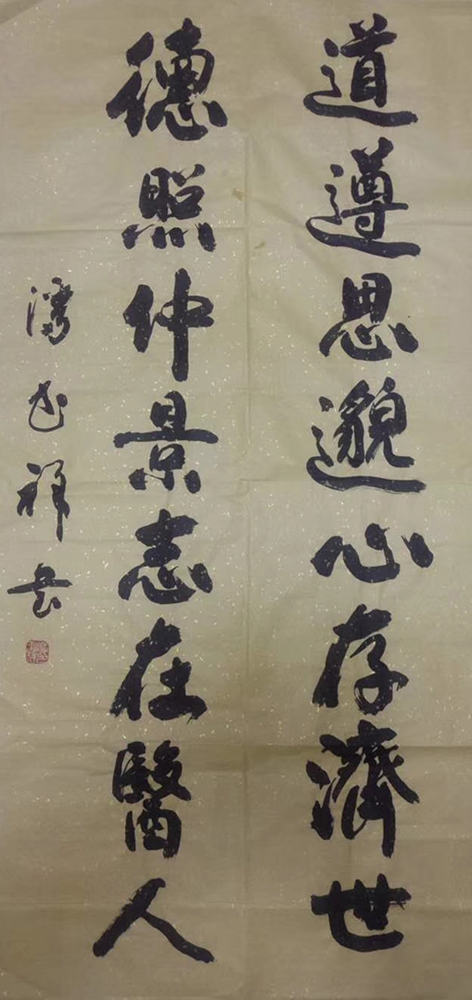 道遵思邈心存濟世
德照仲景志在醫人
潘武祥書